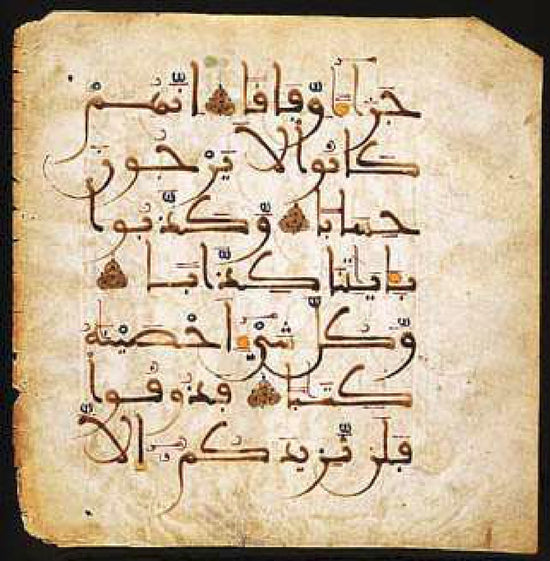 جَزَآءً وِّفَاقًا اِنَّهُمْ
كَانُوا لَا يَرْجُونَ
حِسَابًا وَّكَذَّبُوا
بِـَٔايَٰتِنَا كِذَّابًا
وَكُلَّ شَيْءٍ اَحْصَيْنَٰهُ
كِتَٰبًا فَذُوقُوا
فَلَن نَّزِيدَكُمُ إِلَّا